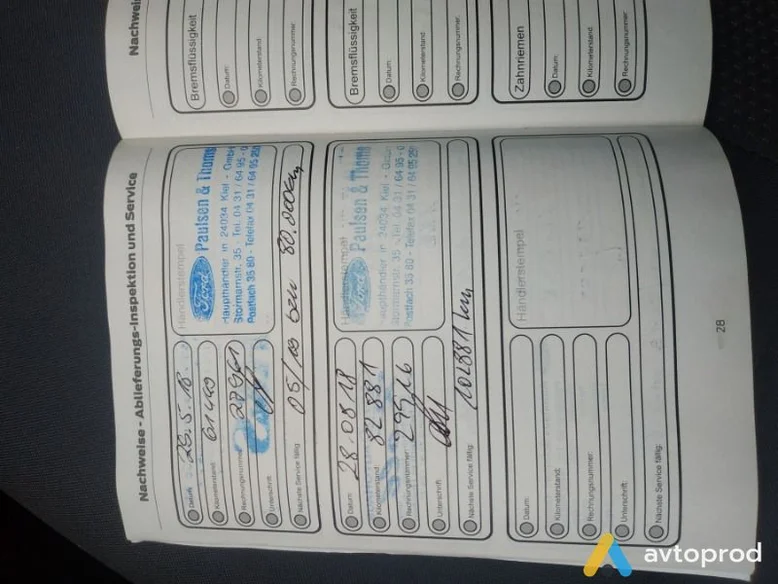 Nachweise
Bremsflüssigkeit
Datum:
Kilometerstand:
Rechnungsnummer:
Bremsflüssigkeit
Datum:
Kilometerstand:
Rechnungsnummer:
Zahnriemen
Datum:
Kilometerstand:
Rechnungsnummer:
Nachweise - Ablieferungs-Inspektion und Service
Datum:
Kilometerstand:
Rechnungsnummer:
Unterschrift:
Nächste Service fällig:
80.000km
Händlerstempel
Ford Paulsen & Thoms
Haupthändler in 24034 Kiel - GmbH
Stormarnstr. 35 - Tel. 04 31 / 64 95 - 0
Postfach 35 80 - Telefax 04 31 / 64 95 250
Datum: 28.05.18
Kilometerstand: 82 881
Rechnungsnummer: 29516
Unterschrift:
Nächste Service fällig: 102881 km
Händlerstempel
Paulsen & Thoms
Haupthändler in 24034 Kiel - GmbH
Stormarnstr. 35 - Tel. 04 31 / 64 95 - 0
Postfach 35 80 - Telefax 04 31 / 64 95 250
Datum:
Kilometerstand:
Rechnungsnummer:
Unterschrift:
Nächste Service fällig:
Händlerstempel
28
avtoprod